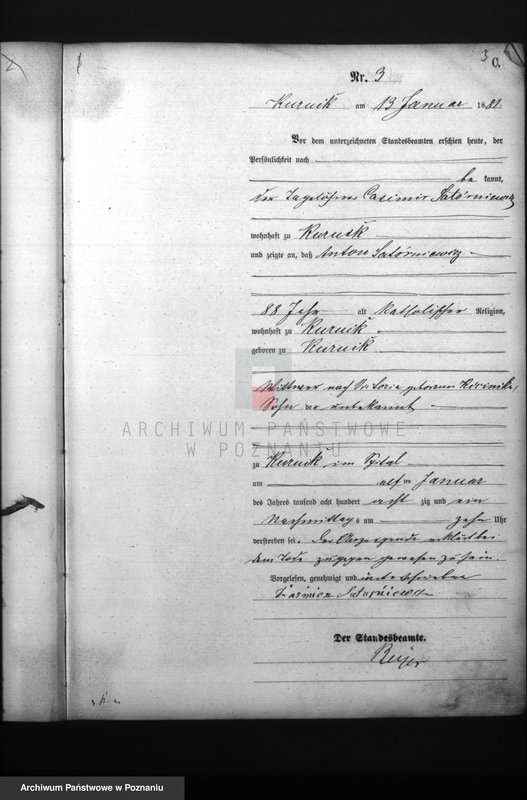 3
C.
Nr. 3
Kurnik am 13 Januar 1881.
Vor dem unterzeichneten Standesbeamten erschien heute, der
Persönlichkeit nach
be kannt,
der Tagelöhner Casimir Satórniewicz
wohnhaft zu Kurnik
und zeigte an, daß Anton Satórniewicz
88 Jahr alt katholischer Religion,
wohnhaft zu Kurnik
geboren zu Kurnik
Wittwer nach geborene
Sohn unbekannt
ARCHIWUM PAŃSTWOWE
W POZNANIU
zu Kurnik im Spital
am elf ten Januar
des Jahres tausend acht hundert acht zig und ein
Nachmittag s um zehn Uhr
verstorben sei. Der Anzeigende erklärt bei
dem Tode zugegen gewesen zu sein.
Vorgelesen, genehmigt und unterschrieben
Der Standesbeamte.
Archiwum Państwowe w Poznaniu